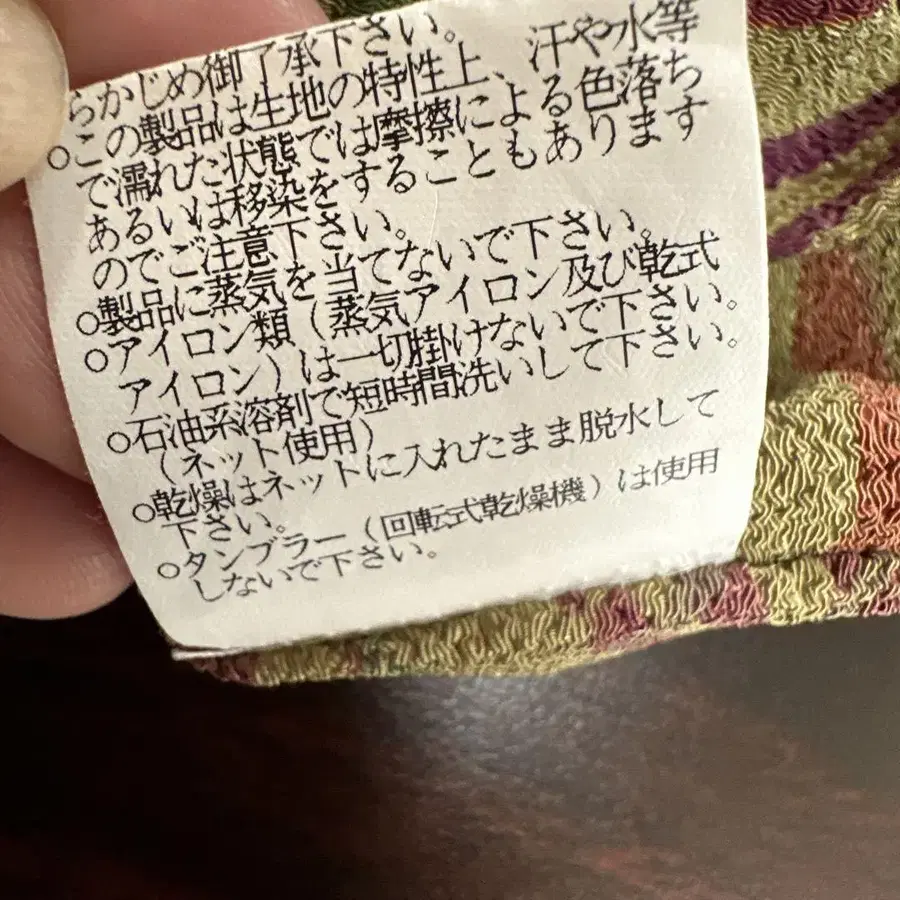 らかじめ御了承下さい。
○この製品は生地の特性上、汗や水等
で濡れた状態では摩擦による色落ち
あるいは移染をすることもあります
のでご注意下さい。
○製品に蒸気を当てないで下さい。
○アイロン類（蒸気アイロン及び乾式
アイロン）は一切掛けないで下さい。
○石油系溶剤で短時間洗いして下さい。
（ネット使用）
○乾燥はネットに入れたまま脱水して
下さい。
○タンブラー（回転式乾燥機）は使用
しないで下さい。